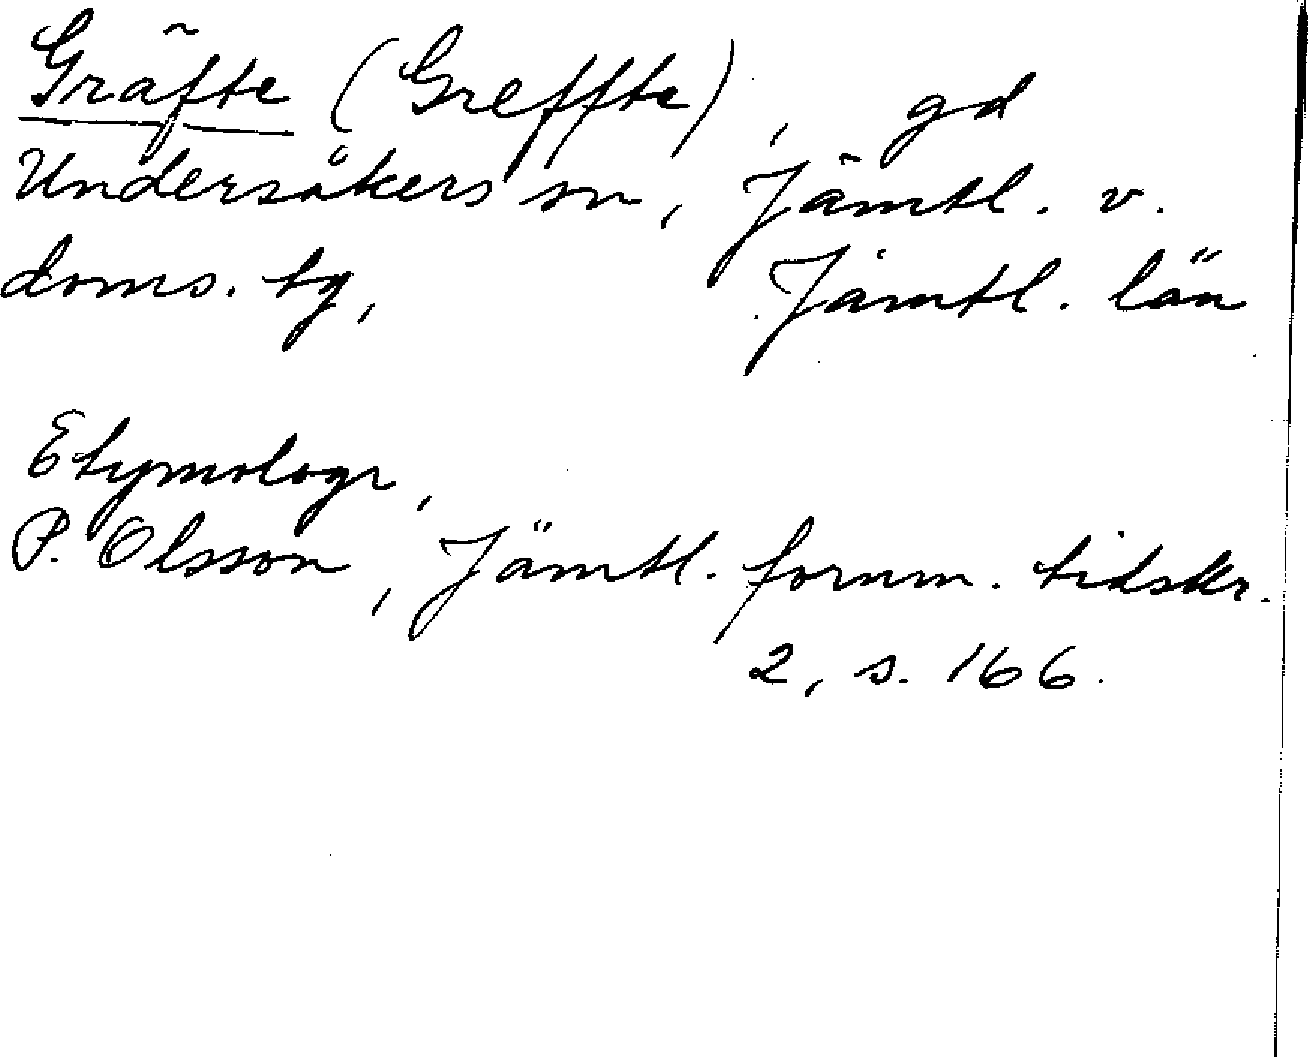 Gräfte (Greffte), gd
Undersåkers sn, Jämtl. v.
doms. tg, Jämtl. län
Etymologi,
P. Olsson, Jämtl. fornm. tidskr.
2, s. 166.